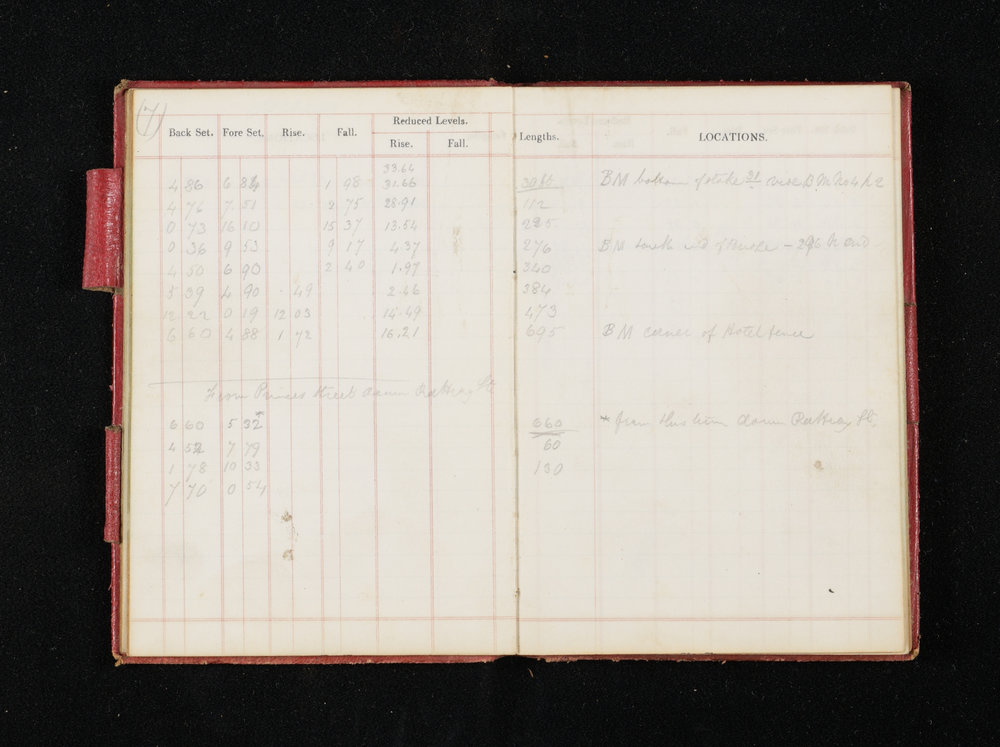 (7)
Back Set. Fore Set. Rise. Fall. Reduced Levels. Rise. Fall. Lengths. LOCATIONS.
33.64
4 86 6 84 1 98 31.66 BM bottom of stake 31 vide B M No 4 P 2
4 76 7 51 2 75 28.91 112
0 73 16 10 15 37 13.54 225
0 36 9 53 9 17 4.37 276 BM south end of - 296 N end
4 50 6 90 2 40 1.97 340
5 39 4 90 · 49 2.46 384
12 22 0 19 12 03 14.49 473
6 60 4 88 1 72 16.21 695 BM corner of Hotel fence
From Princes Street down Rattray St
6 60 5 32* 660 * from this turn down Rattray St.
4 52 7 79 60
1 78 10 33 130
7 70 0 54